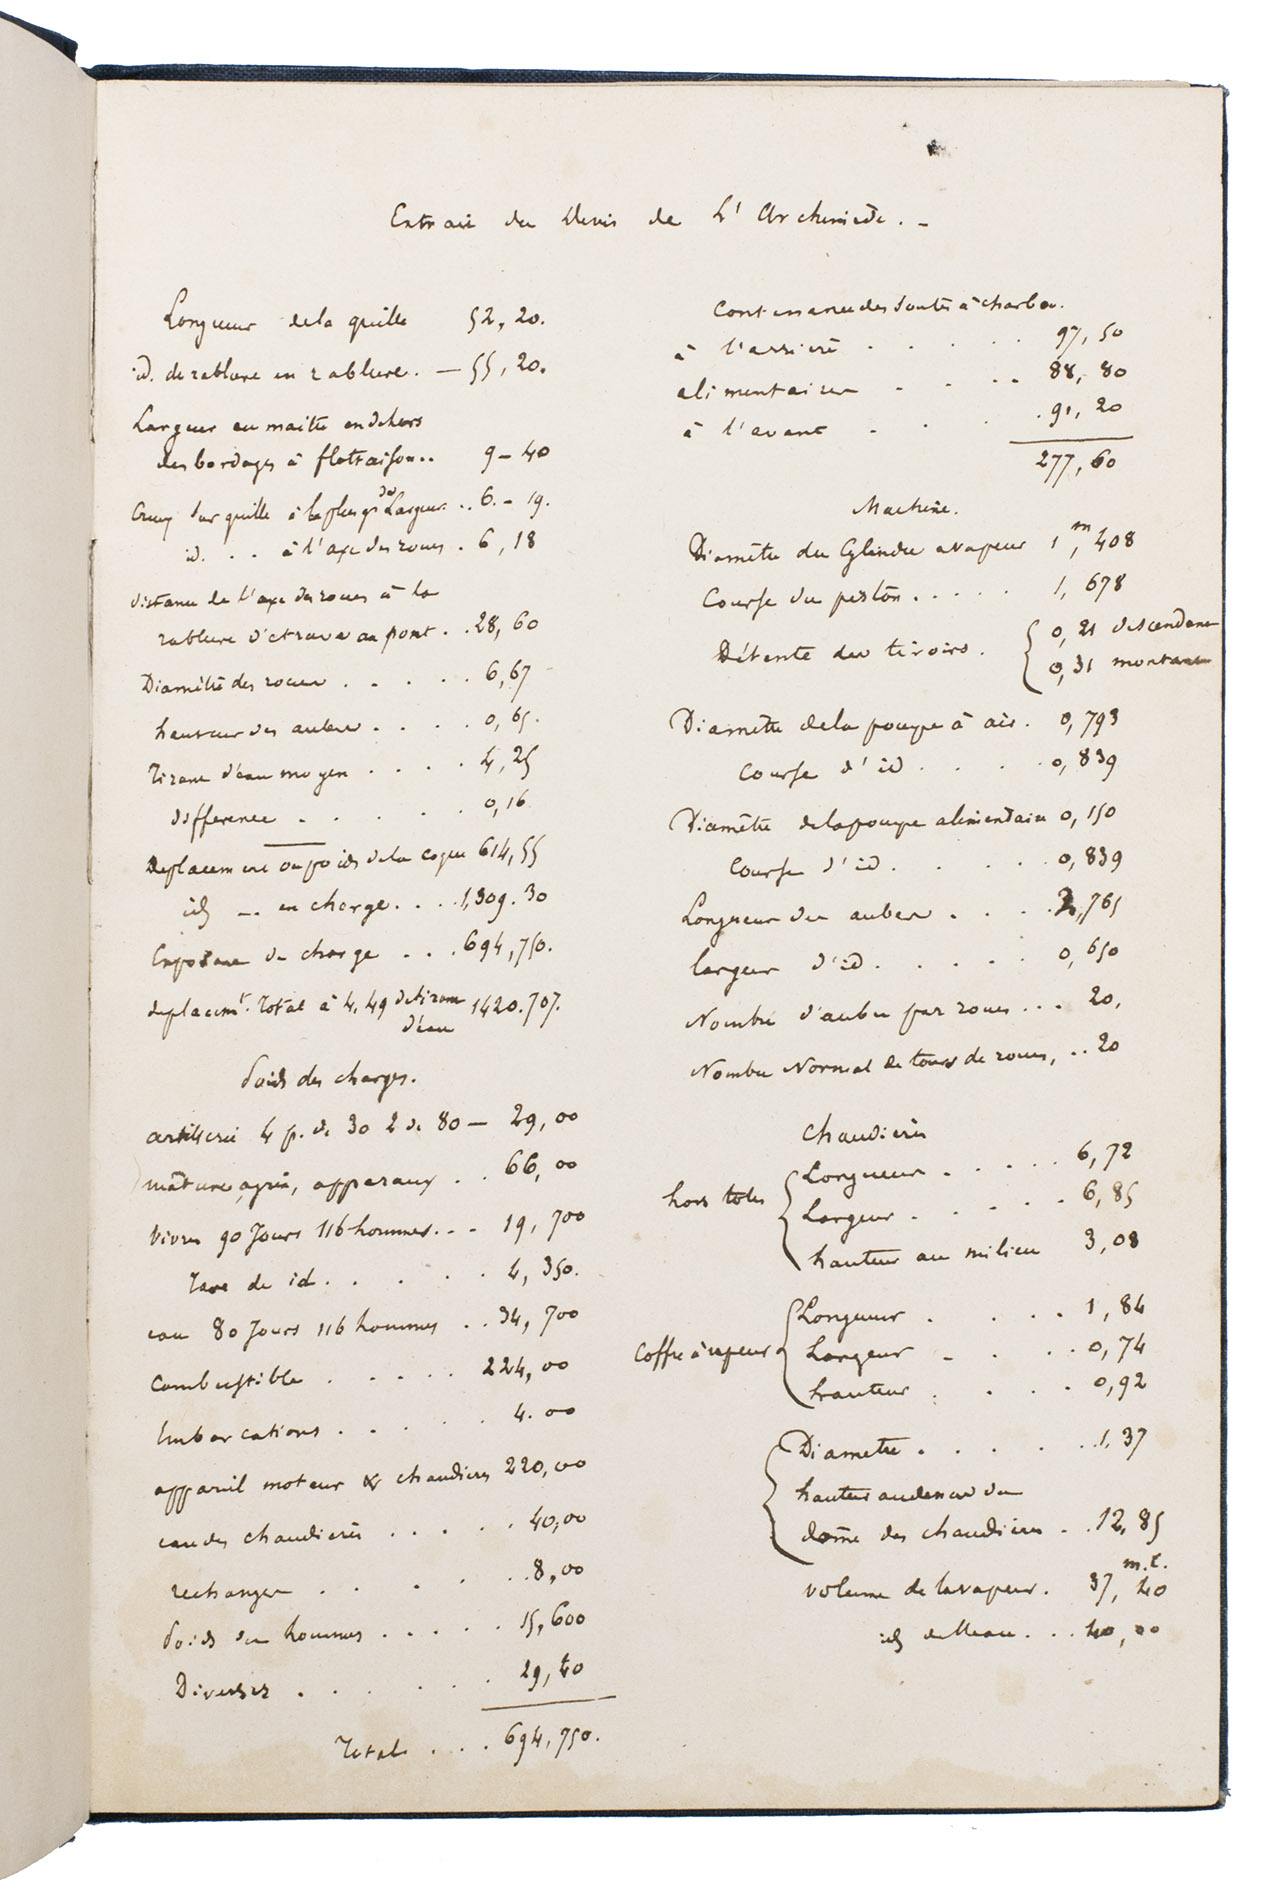 Extrait du Devis de L'Archimède. -
Longueur de la quille 52, 20.
id. de rablure en rablure. — 55, 20.
Largeur au maitre en dehors
des bordages à flottaison.. 9 - 40
Creux sur quille à la plus gr de Largeur. .. 6. - 19.
id. . . à l'axe des roues . 6, 18
distance de l'axe des roues à la
rablure d'etrave au pont . . 28, 60
Diamètre des roues . . . . . 6, 67
hauteur des aubes . . . . 0, 65.
Tirant d'eau moyen . . . . 4, 25
difference . . . . . . 0, 16
deplacement ou poids de la coque 614, 55
id — . en charge. . . . 1,309. 30
Exposant de charge . . . 694, 750.
deplacemt. total à 4, 49 de tirant
d'eau 1420. 707.
Poids des charges.
artillerie 4 p. de 30 2 de 80 — 29, 00
mâture, agrès, apparaux . . 66, 00
Vivres 90 Jours 116 hommes. . . 19, 700
Tare de id . . . . . . 4, 350.
eau 80 Jours 116 hommes . . 34, 700
Combustible . . . . . 224, 00
Embarcations . . . . . 4. 00
appareil moteur & chaudières 220, 00
eau des chaudières . . . . . 40, 00
rechanges . . . . . . 8, 00
Poids des hommes . . . . . 15, 600
Diverses . . . . . . 29, 40
Total . . . 694, 750.
Contenance des soutes à charbon.
à l'arrière . . . . . 97, 50
alimentaires . . . . 88, 80
à l'avant . . . . 91, 20
277, 60
Machine.
Diamètre du Cylindre a vapeur 1 m, 408
Course du piston . . . . . 1, 678
Détente des tiroirs . { 0, 21 descendant
0, 31 montant
Diamètre de la pompe à air . 0, 793
Course d' id . . . . . 0, 839
Diamètre de la pompe alimentaire 0, 150
Course d' id . . . . . 0, 839
Longueur des aubes . . . . 2, 765
largeur d' id . . . . . 0, 650
Nombre d'aubes par roues . . . 20.
Nombre Normal de tours de roues, . . 20
Chaudières
hors toles { Longueur . . . . . 6, 72
Largeur . . . . . 6, 85
hauteur au milieu 3, 08
Coffre à vapeur { Longueur . . . . 1, 84
Largeur . . . . 0, 74
hauteur . . . . 0, 92
{ Diametre . . . . . . 1, 37
hauteur au dessus du
dome des chaudières . . 12, 85
volume de la vapeur . 37, m.c. 40
id de l'eau . . . 40, 00